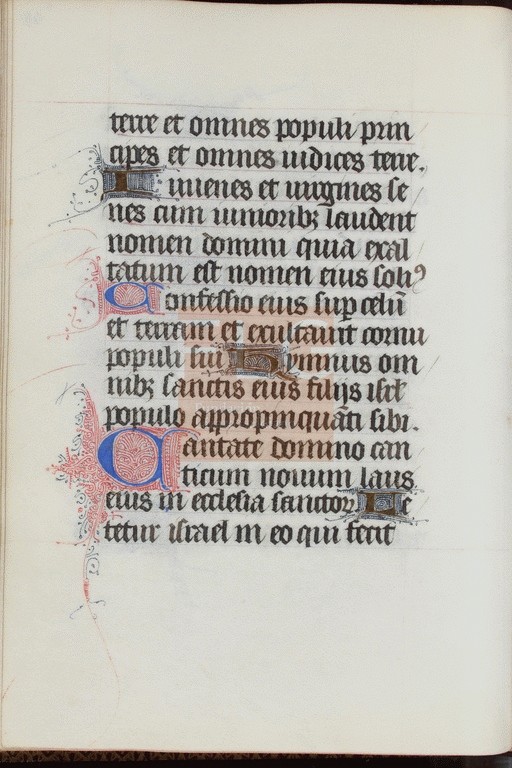 terre et omnes populi prin
cipes et omnes iudices terre.
Iuuenes et uirgines se
nes cum iunioribꝫ laudent
nomen domini quia exal
tatum est nomen eius soliꝰ
Confessio eius sup celū
et terram et exultauit cornu
populi sui Hymnus om
nibꝫ sanctis eius filijs isrl
populo appropinquāti sibi.
Cantate domino can
ticum nouum laus
eius in ecclesia sanctoꝝ Le
tetur israel in eo qui fecit